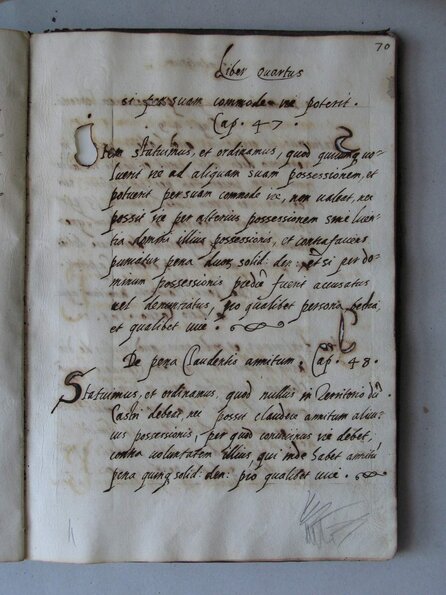 70
Liber Quartus
si per suam commode ire poterit.
Cap. 47.
Item statuimus, et ordinamus, quod quicunq vo-
luerit ire ad aliquam suam possessionem, et
potuerit per suam commode ire, non valeat, nec
possit ire per alterius possessionem sine licen-
tia domini illius possessionis, et contrafaciens
puniatur pena duor, solid: den: et si per do-
minum possessionis predic fuerit accusatus
vel denuntiatus, pro qualibet persona
et qualibet vice.
De pena Claudentis annitum. Cap. 48.
Statuimus, et ordinamus, quod nullus in Territorio
Castri debeat nec possit claudere annitum alicu-
ius possessionis, per quod convicinus ire debet,
contra voluntatem illius, qui inde habet annitu
pena quinq solid: den: pro qualibet vice.